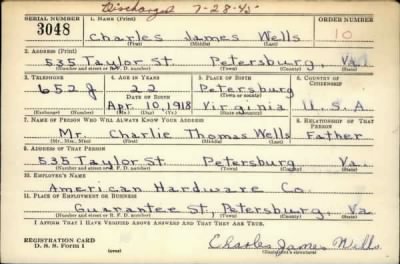 Discharged 7-28-45
SERIAL NUMBER 1. NAME (Print) ORDER NUMBER
3048 Charles James Wells 10
(First) (Middle) (Last)
2. ADDRESS (Print)
535 Taylor St. Petersburg, Va.
(Number and street or R. F. D. number) (Town) (County) (State)
3. TELEPHONE 4. AGE IN YEARS 5. PLACE OF BIRTH 6. COUNTRY OF CITIZENSHIP
652 J 22 Petersburg
DATE OF BIRTH (Town or county)
Apr. 10, 1918 Virginia U.S.A
(Exchange) (Number) (Mo.) (Day) (Yr.) (State or country)
7. NAME OF PERSON WHO WILL ALWAYS KNOW YOUR ADDRESS 8. RELATIONSHIP OF THAT PERSON
Mr. Charlie Thomas Wells Father
(Mr., Mrs., Miss) (First) (Middle) (Last)
9. ADDRESS OF THAT PERSON
535 Taylor St. Petersburg Va.
(Number and street or R. F. D. number) (Town) (County) (State)
10. EMPLOYER'S NAME
American Hardware Co.
11. PLACE OF EMPLOYMENT OR BUSINESS
Guarantee St., Petersburg, Va.
(Number and street or R. F. D. number) (Town) (County) (State)
I AFFIRM THAT I HAVE VERIFIED ABOVE ANSWERS AND THAT THEY ARE TRUE.
REGISTRATION CARD
D. S. S. Form 1 (over) Charles James Wells
(Registrant's signature)